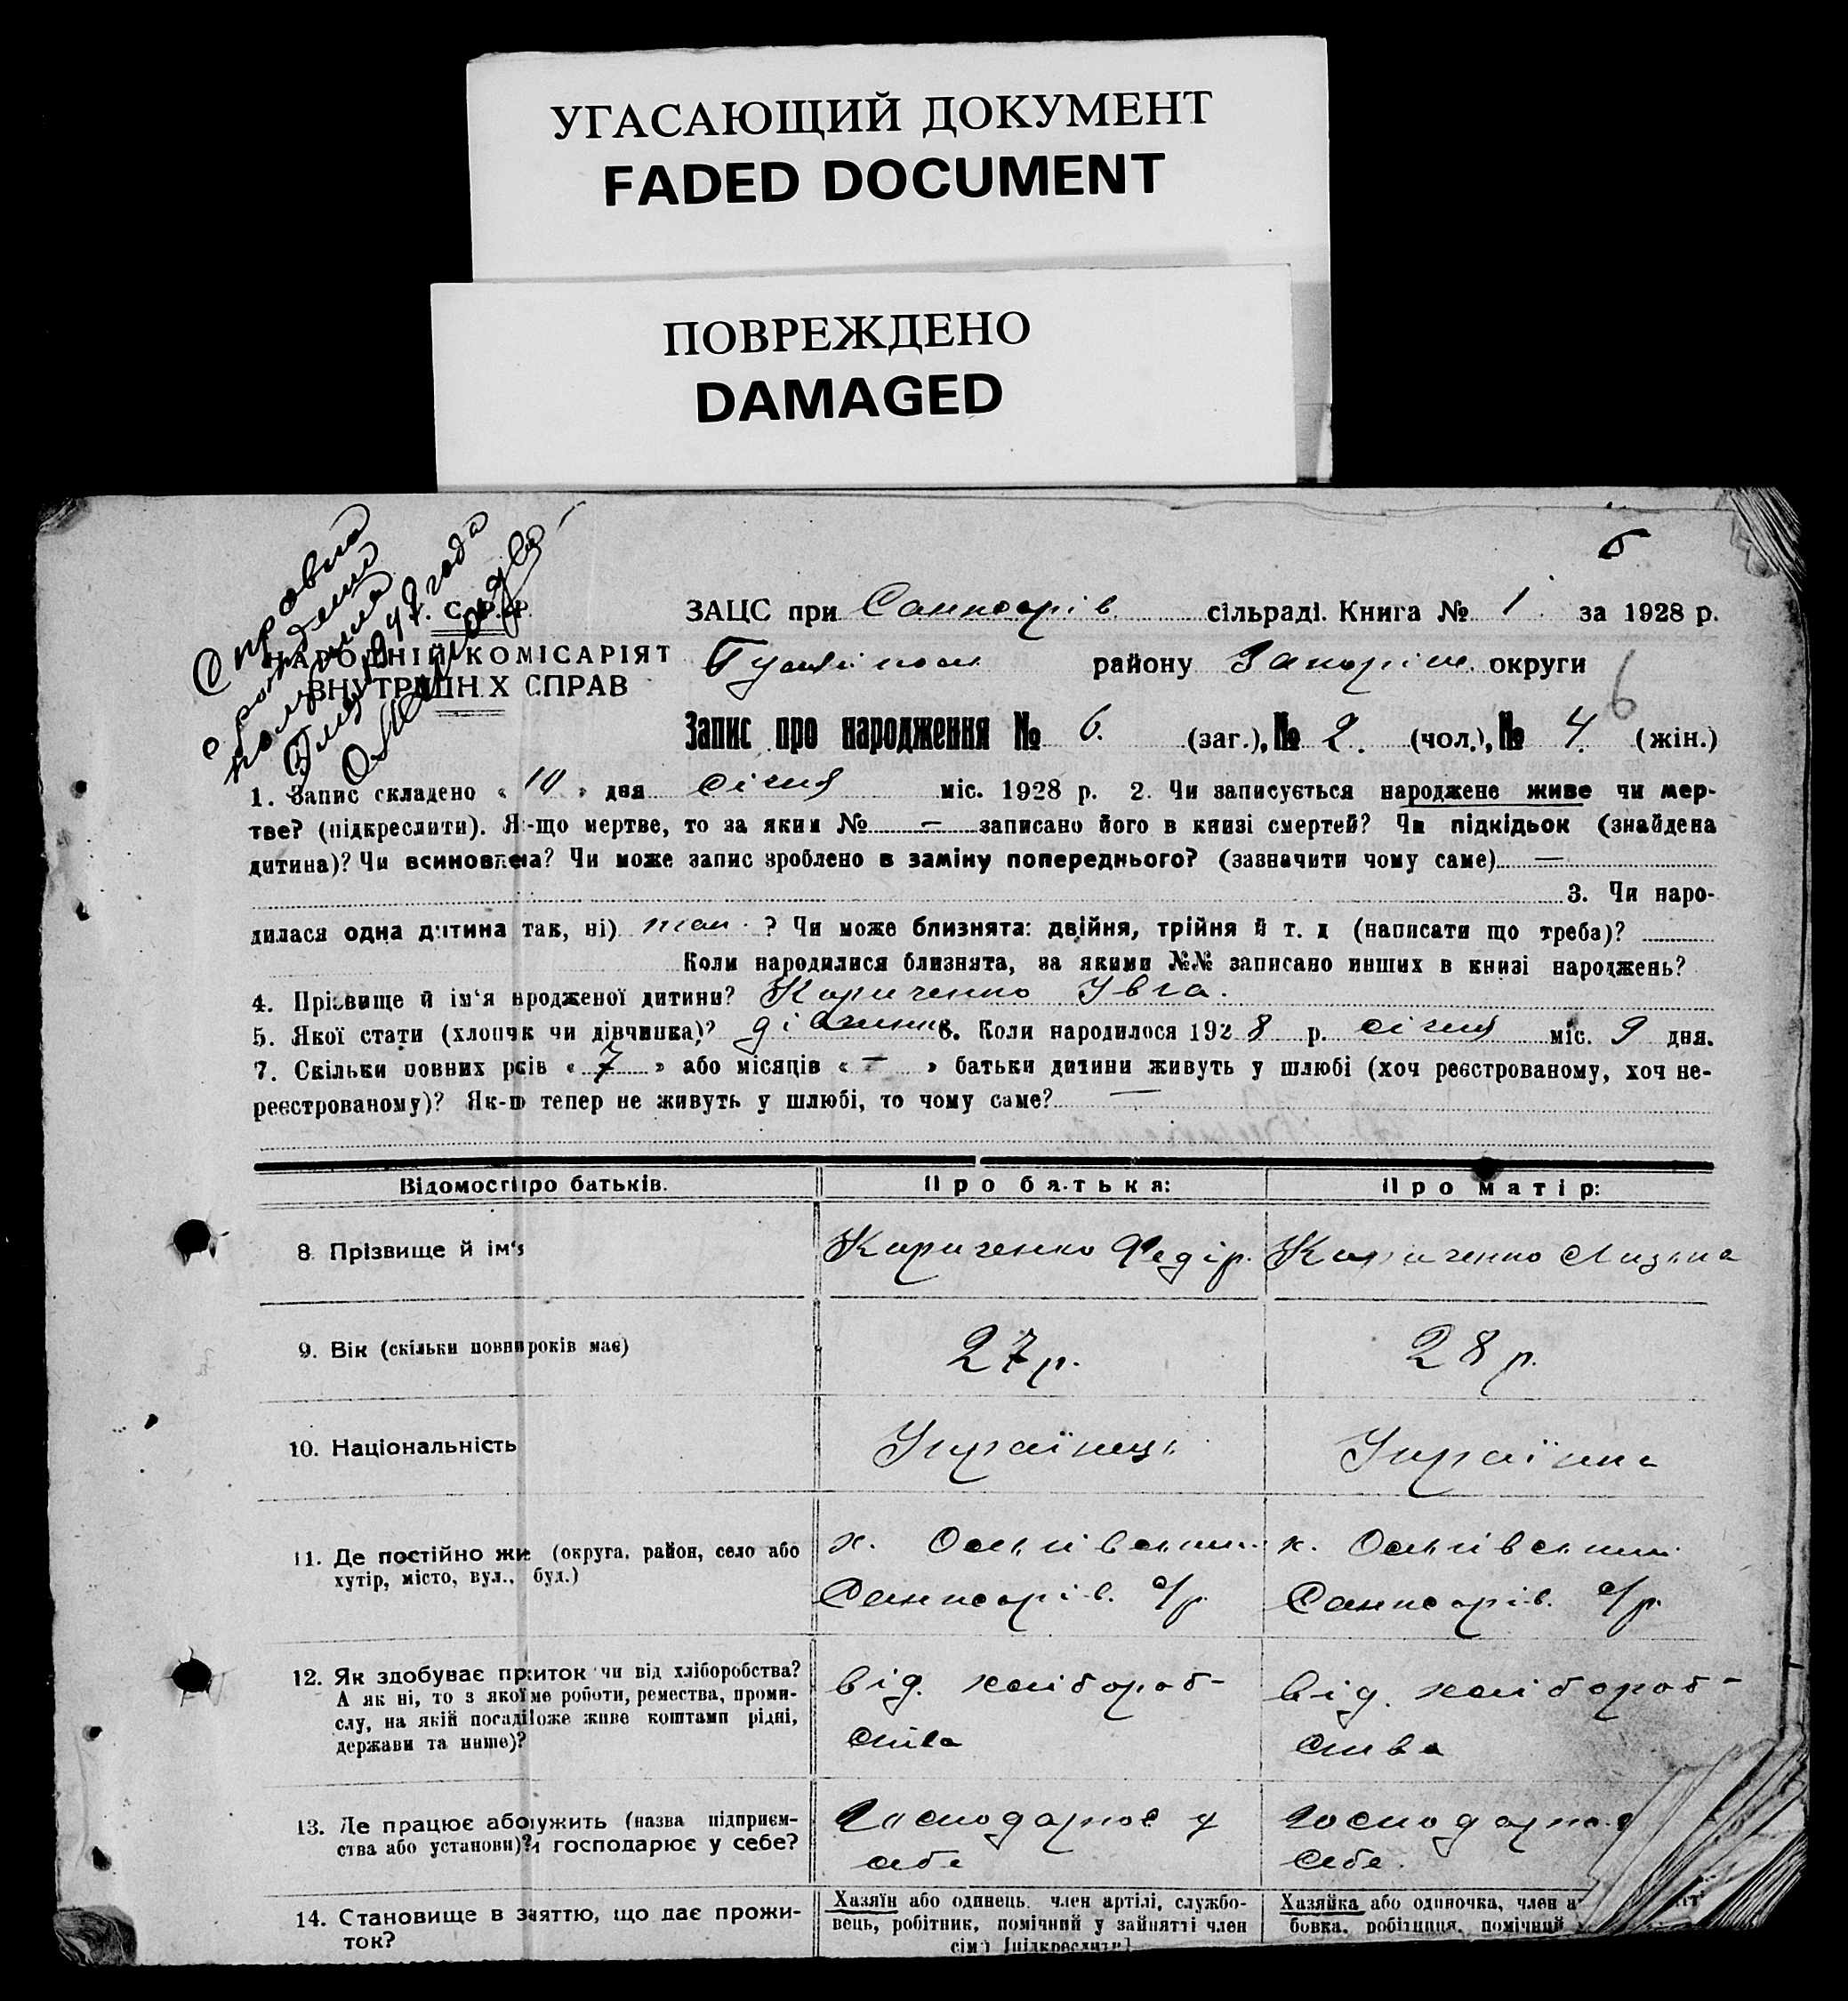 УГАСАЮЩИЙ ДОКУМЕНТ
FADED DOCUMENT
ПОВРЕЖДЕНО
DAMAGED
Справка
о рождении
1947 года
С. Р. Р.
НАРОДНІЙ КОМІСАРІЯТ
ВНУТРІШНІХ СПРАВ
ЗАЦС при сільраді. Книга № 1 за 1928 р.
району Запоріж. округи
6
Запис про народження № 6. (заг.), № 2. (чол.), № 4. (жін.)
1. Запис складено « 10 » дня січня міс. 1928 р. 2. Чи записується народжене живе чи мер-
тве? (підкреслити). Як-що мертве, то за яким № — записано його в книзі смертей? Чи підкідьок (знайдена
дитина)? Чи всиновлена? Чи може запис зроблено в заміну попереднього? (зазначити чому саме) —
3. Чи наро-
дилася одна дитина так, ні) так. ? Чи може близнята: двійня, трійня й т. д (написати що треба)?
Коли народилися близнята, за якими №№ записано инших в книзі народжень?
4. Прізвище й ім'я нродженої дитини? Кириченко Ївга.
5. Якої стати (хлопчк чи дівчинка)? дівчинка 6. Коли народилося 1928 р. січня міс. 9 дня.
7. Скільки повних рків « 7 » або місяців « — » батьки дитини живуть у шлюбі (хоч реєстрованому, хоч не-
реєстрованому)? Як-що тепер не живуть у шлюбі, то чому саме? —
Відомості про батьків. Про батька: Про матір:
8 Прізвище й ім'я Кириченко Федір. Кириченко
9. Вік (скільки повних років має) 27 р. 28 р.
10. Національність Українець Українка
11. Де постійно жи (округа, район, село або х. х.
хутір, місто, вул., буд.) с/р. с/р.
12. Як здобуває прожиток чи від хліборобства? від. хлібороб- від. хлібороб-
А як ні, то з якої саме роботи, ремества, проми- ства ства
слу, на якій посаді може живе коштами рідні,
держави та инше)?
13. Де працює або служить (назва підприєм- господарює у господарює
ства або установи)? чи господарює у себе? себе себе.
14. Становище в заняттю, що дає прожи- Хазяїн або одинець, член артілі, службо- Хазяйка або одиночка, член
ток? вець, робітник, помічний у зайнятті член бовка, робітниця, помічний
сім'ї [підкреслити]